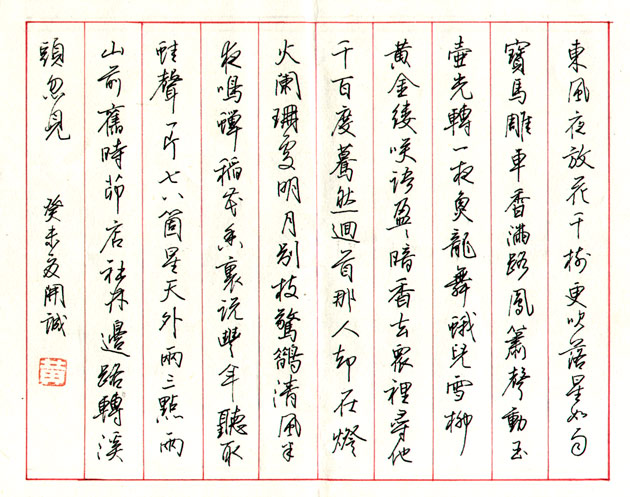 東風夜放花千樹更吹落星如雨
寶馬雕車香滿路鳳簫聲動玉
壺光轉一夜魚龍舞蛾兒雪柳
黃金縷笑語盈〻暗香去眾裡尋他
千百度驀然迴首那人卻在燈
火闌珊處明月別枝驚鵲清風半
夜鳴蟬稻花香裏說豐年聽取
蛙聲一片七八箇星天外兩三點雨
山前舊時茆店社林邊路轉溪
頭忽見 癸未夏開誠
黃